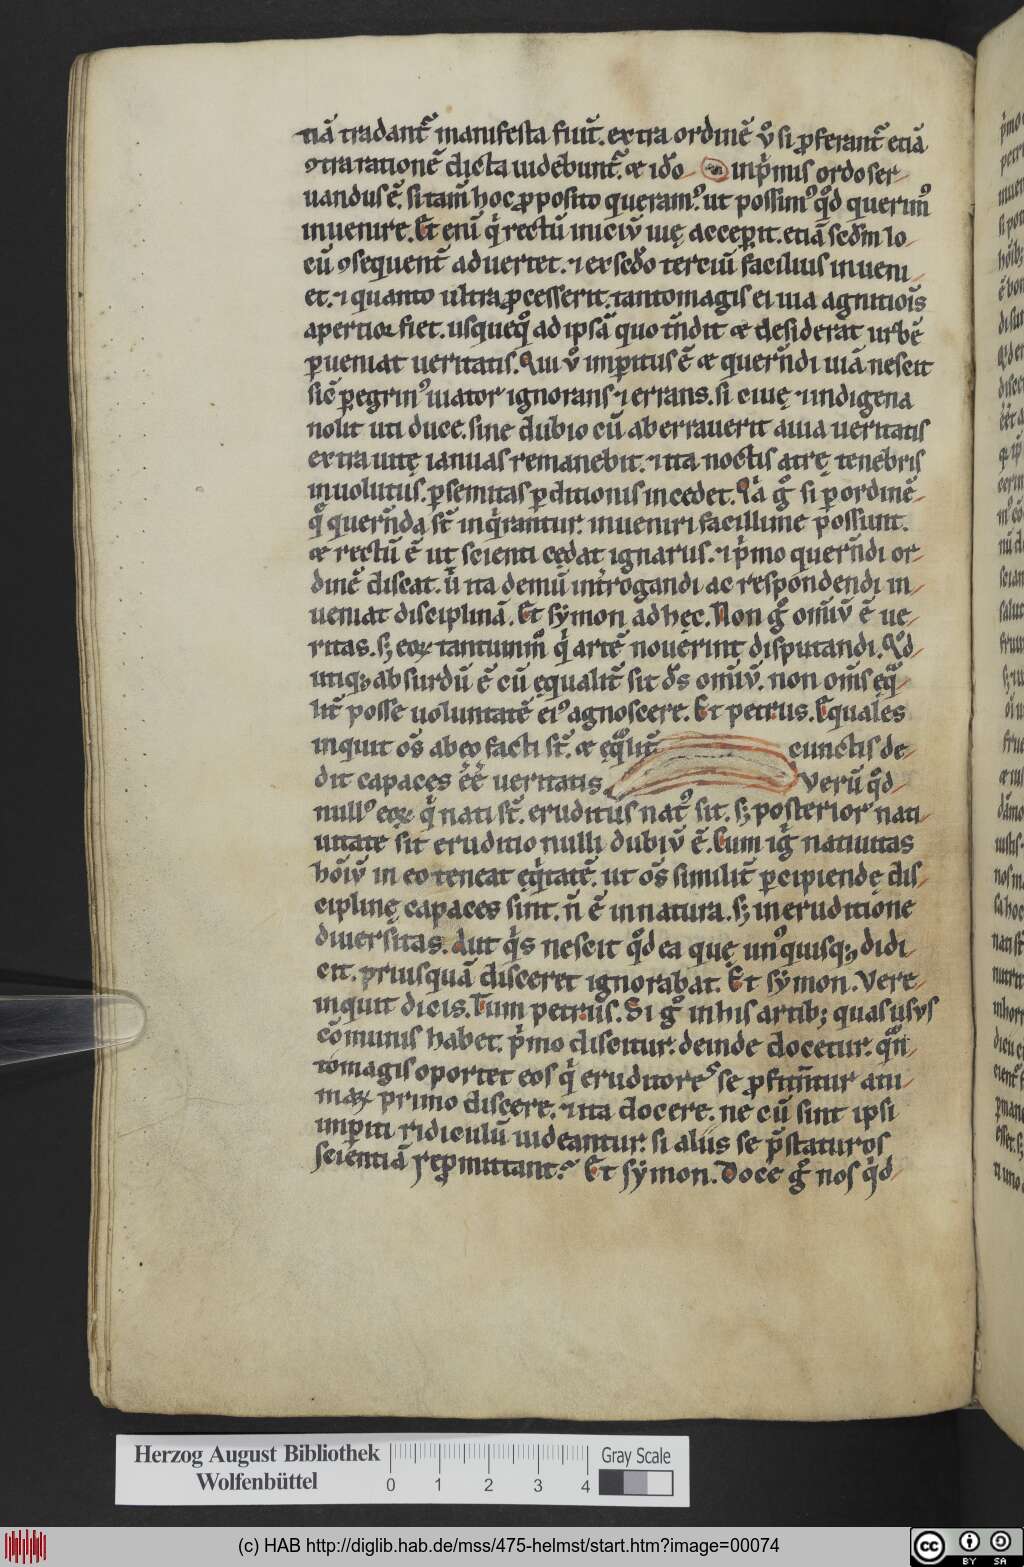 tiā tradant᷑ manifesta fiūt. extra ordinē ū̊ si ꝓferant᷑ etiā
ꝯtra rationē dicta uidebunt᷑. ⁊ iđo inpͥmis ordo ser-
uandus ē. si tam̄ hoc ꝓposito queram᷒. ut possim᷒ qđ querim᷒
inuenire. Et eni qͥ rectū iniciū uię acceꝑit. etiā scđm lo-
cū ꝯsequent᷑ aduertet. ⁊ ex scđo terciū facilius inueni-
et. ⁊ quanto ultra ꝓcesserit. tantomagis ei uia agnitiōis
apertior fiet. usquequo ad ipsā quo tn̄dit ⁊ desiderat urbē
ꝑueniat ueritatis. Qui ū̊ imꝑitus ē ⁊ quern̄di uiā nescit
sic̄ ꝑegrin᷒ uiator ignorans ⁊ errans. si ciuę ⁊ indigena
nolit uti duce. sine dubio cū aberrauerit a uia ueritatis
extra uitę ianuas remanebit. ⁊ ita noctis atrę tenebris
inuolutus. ꝑ semitas ꝑditionis incedet. Qͣ gͦ si ꝑ ordinē
q̄ quern̄da st̄ inqͥrantur. inueniri facillime possunt.
⁊ rectū ē ut scienti cedat ignarus. ⁊ pͥmo quern̄di or-
dinē discat. ut ita demū intr̄ogandi ac respondendi in-
ueniat disciplinā. Et symon ad hec. Non gͦ omīū ē ue-
ritas. sꝫ eoꝝ tantummͦ qͥ artē nouerint disputandi. Qđ
utiqꝫ absurdū ē cū ęqualit᷑ sit dī̄s omīū. non oīms ęq̄-
lit᷑ posse uoluntatē ei᷒ agnoscere. Et petrus. Equales
inquit oīs ab eo facti st̄. ⁊ ęq̄lit᷑ cunctis de-
dit capaces ee᷑ ueritatis Verū qđ
null᷒ eoꝝ qͥ nati st̄. eruditus nat᷒ sit. sꝫ posterior nati-
uitate sit eruditio nulli dubiū ē. Cum igͥ natiuitas
hoīū in eo teneat ęqͥtatē. ut oīs similit᷑ ꝑcipiendę dis-
ciplinę capaces sint. n̄ ē in natura. sꝫ in eruditione
diuersitas. Aut qͥs nescit qđ ea quę un᷒quisqꝫ didi-
cit. priusquā disceret ignorabat. Et symon. Vere
inquit dicis. Tum petrus. Si gͦ in his artibꝫ quas usus
cōmunis habet. pͥmo discitur. deinde docetur. qͣn-
tomagis oportet eos qͥ eruditores se ꝓfitn̄tur ani-
maꝝ primo discere. ⁊ ita docere. ne cū sint ipsi
imꝑiti ridiculū uideantur. si aliis se p̄staturos
scientiā reꝓmittant? Et symon. Doce gͦ nos qͥd
Herzog August Bibliothek
Wolfenbüttel
0 1 2 3 4
Gray Scale
(c) HAB http://diglib.hab.de/mss/475-helmst/start.htm?image=00074
cc BY SA